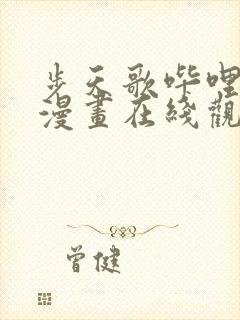 步天歌哔哩
漫畫在綫觀
曾健